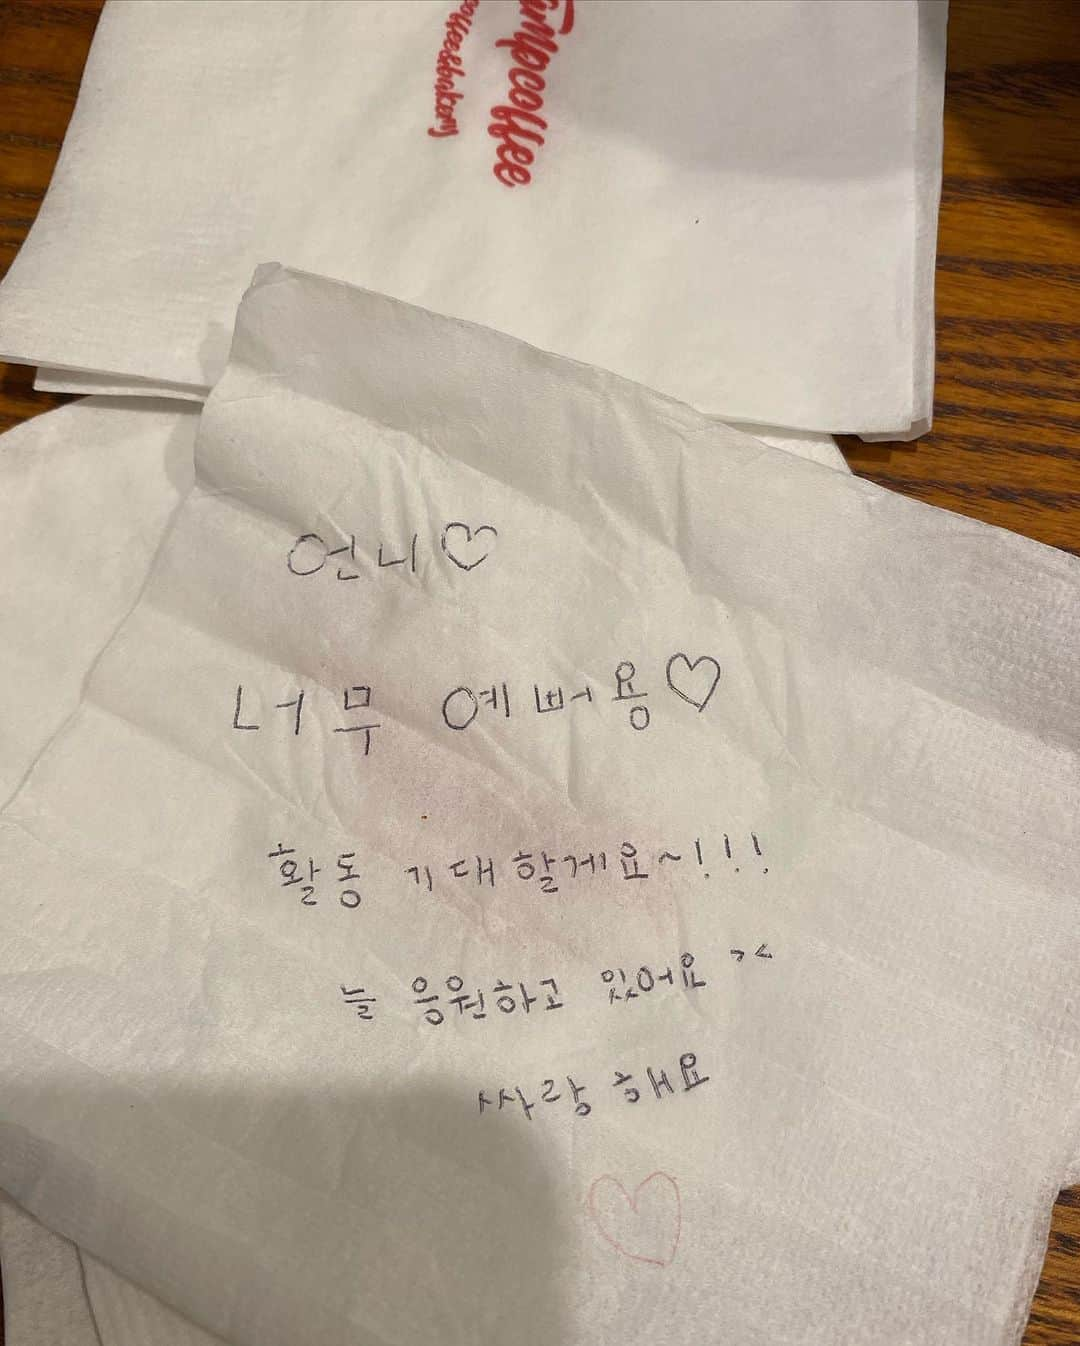 coffee&bakery
언니♡
너무 예뻐용♡
활동 기대할게요~!!!
늘 응원하고 있어요 ><
싸랑해요
♡